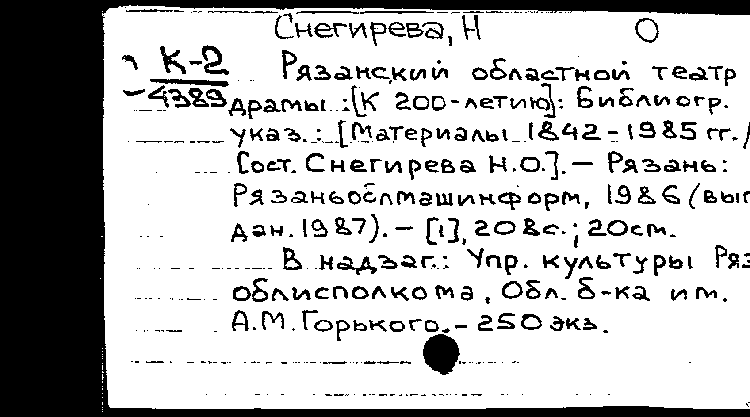 Снегирева, Н О
К-2 Рязанский областной театр
4389 драмы :[К 200-летию]: Библиогр.
указ. : [Материалы 1842-1985 гг./
Сост. Снегирева Н.О.]. — Рязань:
Рязаньоблмашинформ, 1986 (вып
дан. 1987). — [1], 208с.; 20см.
В надзаг.: Упр. культуры Ряз
облисполкома, Обл. б-ка им.
А.М.Горького. — 250 экз.